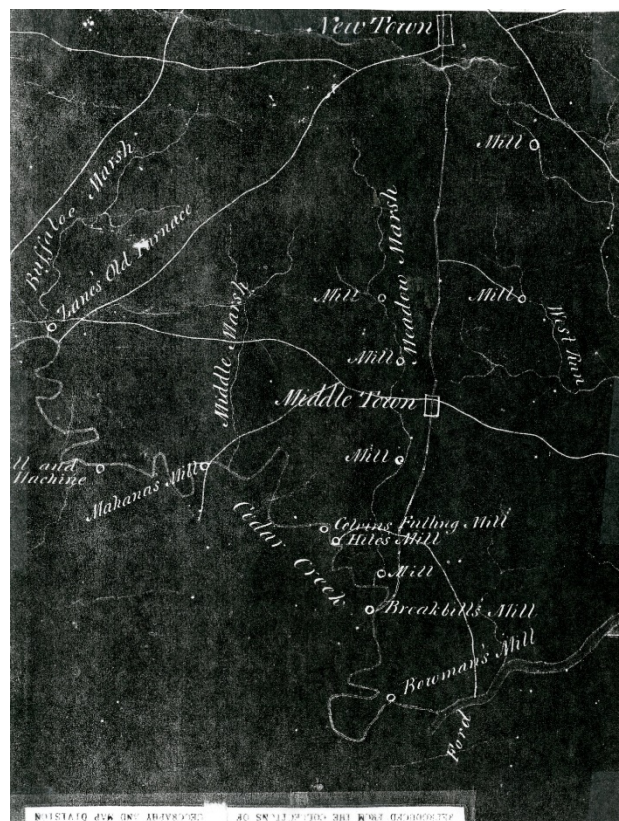 New Town
Mill
Buffaloe Marsh
Lane's Old Furnace
Meadow Marsh
Middle Marsh
Mill
Mill
West Run
Mill
Middle Town
Mill
ll and
Machine
Mahanas Mill
Cedar Creek
Colvins Fulling Mill
Hites Mill
Mill
Breakbills Mill
Bowman's Mill
Ford
REPRODUCED FROM THE COLLECTIONS OF
GEOGRAPHY AND MAP DIVISION